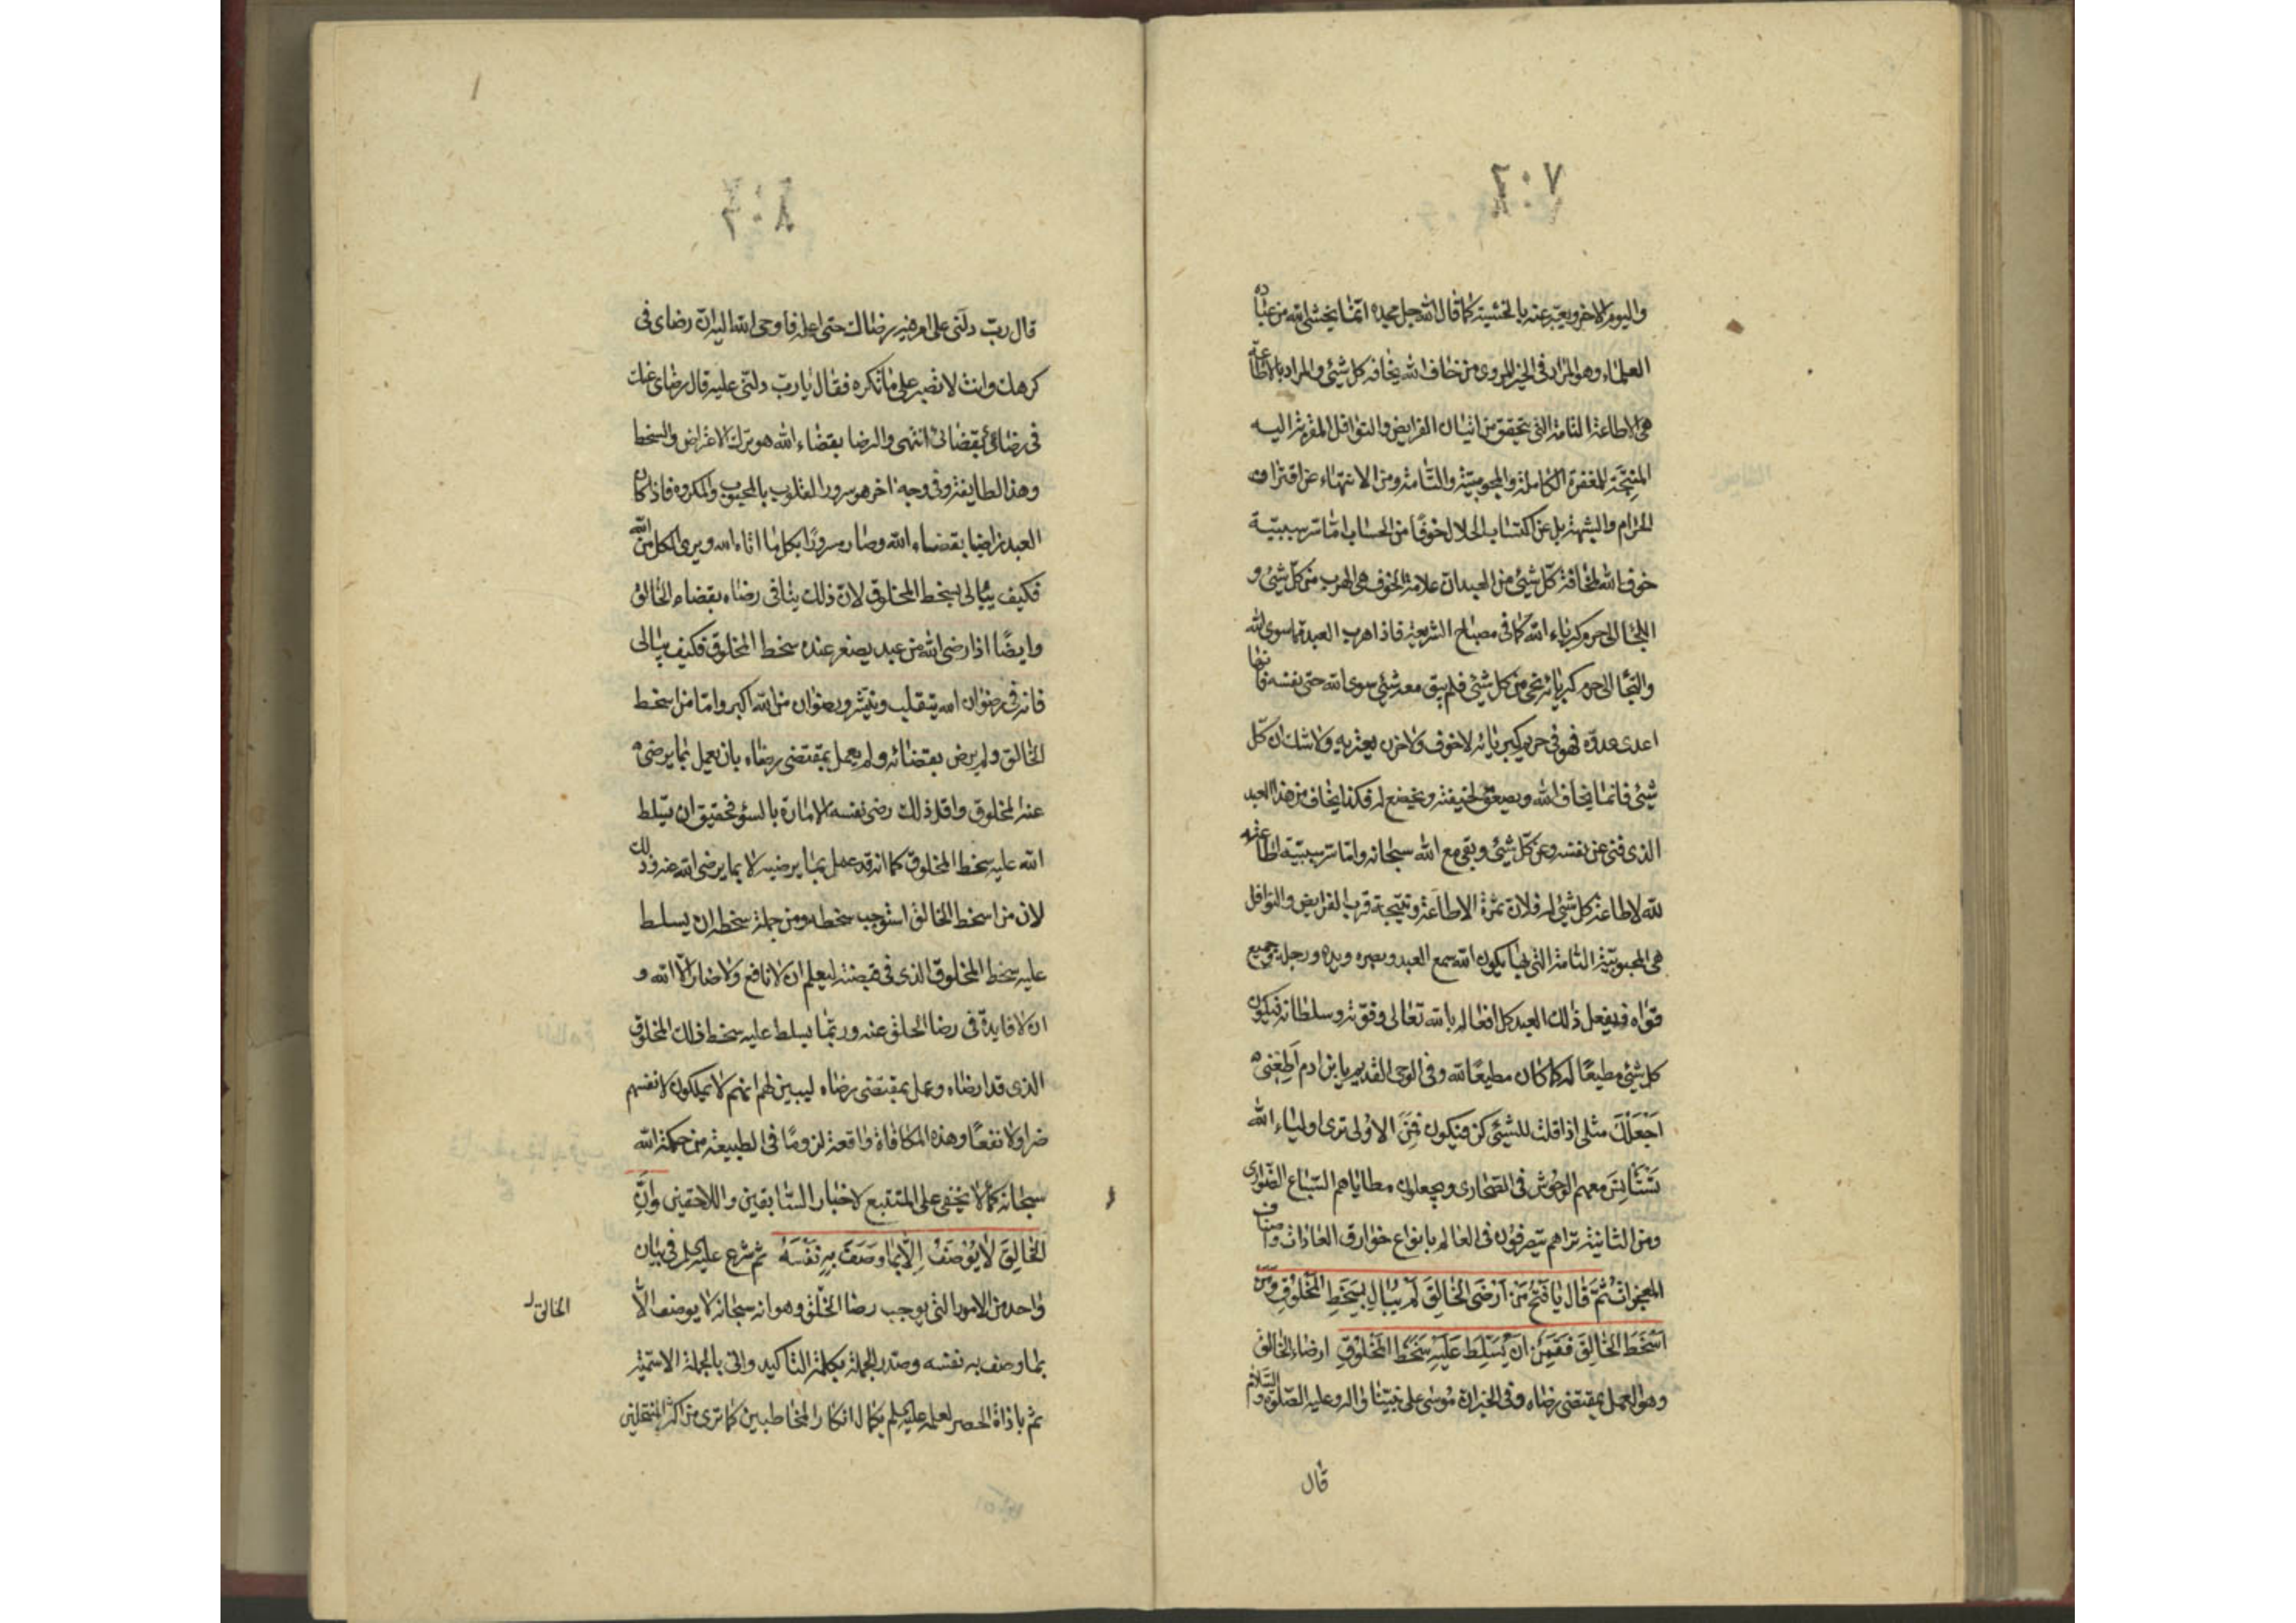 ٢٠٧
واليوم الاخر ويعبر عنه بالخشية كما قال الله جل مجده انما يخشى الله من عباده
العلماء وهو المراد فى الخبر المروى من خاف الله يخافه كل شئ والمراد بالاطاعة
هى الاطاعة التامة التى يتحقق من اتيان الفرايض والنوافل المقربة اليه
المنتجة للمغفرة الكاملة والمحبوبية التامة ومن الانتهاء عن اقتراف
الحرام والشبهة بل عن اكتساب الحلال خوفًا من الحساب اما سر سببية
خوف الله لمخافة كل شئ من العبد ان علامة الخوف هى الهرب من كل شئ و
اللجا الى حرم كبرياء الله كما فى مصباح الشريعة فاذا هرب العبد مما سوى الله
والتجأ الى حرم كبريائه نجى من كل شئ فلم يبق معه شئ سوى الله حتى نفسه فانها
اعدى عدوه فهو فى حريم كبريائه لا خوف ولا حزن يعتريه ولا شك ان كل
شئ فانما يخاف الله ويصعق لخيفته ويخضع له فكذا يخاف من هذا العبد
الذى فنى عن نفسه وعن كل شئ وبقى مع الله سبحانه واما سر سببية اطاعة
لله لاطاعة كل شئ له فلان ثمرة الاطاعة ونتيجة قرب الفرايض والنوافل
هى المحبوبية التامة التى بها يكون الله سمع العبد وبصره ويده ورجله وجميع
قواه فيفعل ذلك العبد كل افعاله بالله تعالى وقوته وسلطانه فيكون
كل شئ مطيعًا له كما كان مطيعًا لله وفى الوحى القديم يا ابن ادم اطعنى
اجعلك مثلى اذا قلت للشئ كن فيكون فمن الاولى ترى اولياء الله
تستانس معهم الوحوش فى الصحارى ويجعلون مطاياهم السباع الضوارى
ومن الثانية تراهم يتصرفون فى العالم بانواع خوارق العادات واصناف
المعجزات ثُمَّ قال يا فَتْحُ مَن اَرْضَى الخالِقَ لَم يُبالِ بِسَخَطِ المَخْلُوقِ وَمَن
اَسْخَطَ الخالِقَ فَقَمِنٌ اَن يُسَلِّطَ عَلَيهِ سَخَطَ المَخْلُوقِ ارضاء الخالق
وهو العمل بمقتضى رضاه وفى الخبر ان موسى على نبينا واله وعليه الصلوة والسلام
قال
٢٠٨
قال رب دلنى على امر فيه رضاك حتى اعمله فاوحى الله اليه ان رضاى فى
كرهك وانت لا تصبر على ما تكره فقال يا رب دلنى عليه قال رضاى عنك
فى رضاك بقضائى انتهى والرضا بقضاء الله هو ترك الاعتراض والسخط
وهذا لطايفة وفى وجه اخر هو سرور القلوب بالمحبوب والمكروه فاذا كان
العبد راضيا بقضاء الله وصار مسرورًا بكل ما اتاه الله ويرى الكل من الله
فكيف يبالى بسخط المخلوق لان ذلك ينافى رضاه بقضاء الخالق
وايضًا اذا رضى الله من عبد يصغر عنده سخط المخلوق فكيف يبالى
فانه فى رضوان الله يتقلب ورضوان من الله اكبر واما من اسخط
الخالق ولم يرض بقضائه ولم يعمل بمقتضى رضاه بان يعمل بما يرضى
عنه المخلوق واقل ذلك رضى نفسه الامارة بالسوء فحقيق ان يسلط
الله عليه سخط المخلوق كما انه قد عمل بما يرضيه لا بما يرضى الله عنه وذلك
لان من اسخط الخالق استوجب سخطه ومن جملة سخطه ان يسلط
عليه سخط المخلوق الذى فى قبضته ليعلم ان لا نافع ولا ضار الا الله و
ان لا فايدة فى رضا الخلق عنه وربما يسلط عليه سخط ذلك المخلوق
الذى قد ارضاه وعمل بمقتضى رضاه ليبين لهم انهم لا يملكون لانفسهم
ضرا ولا نفعًا وهذه المكافاة واقعة لزومًا فى الطبيعة من حكمة الله
سبحانه كما لا يخفى على المتتبع لاخبار السابقين واللاحقين وَاِنَّ
الخالِقَ لا يُوصَفُ اِلّا بِما وَصَفَ بِهِ نَفْسَهُ ثم شرع عليه السلم فى بيان
واحد من الامور التى يوجب رضا الخلق وهو انه سبحانه لا يوصف الا
الخالق
بما وصف به نفسه وصدر الجملة بكلمة التاكيد واتى بالجملة الاسمية
ثم باداة الحصر لعلمه عليه السلم بكمال انكار المخاطبين كما ترى من اكثر المنتحلين